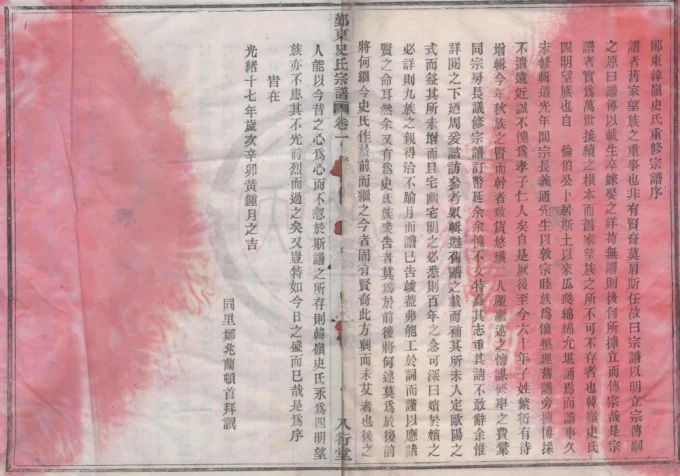 鄞東韓嶺史氏重修宗譜序
譜者舊家望族之重事也非有賢裔莫肩斯任故曰宗譜以明立宗傳嗣
之原曰譜傳以載生卒嫁娶之詳苟無譜則後何所據立而傳宗哉是宗
譜者實為萬世接續之根本而舊家望族之所不可不存者也韓嶺史氏
四明望族也自 倫伯公卜居斯土以來瓜瓞綿綿允堪誦焉而譜事久
未修輯道光年間宗長義通先生以敦宗睦族為懷整理舊譜旁搜博採
不遺遠近誠不愧為孝子仁人矣自是厥後至今六十年子姓繁衍有待
增輯今年秋族之賢而幹者
同宗房長議修宗譜訂幣延余余愧不文特嘉其志重其請不敢辭余惟
詳閱之下廼周爰諮訪參考眾輯舊譜之載而補其所未入定歐陽之
式而益其所未增而且宅幽宅明之必悉則百年之念可深曰嬪於嬪之
必詳則九族之親得洽不踰月而譜已告竣蓋弗能工於詞而謹以應諸
賢之命耳然余又有為史氏族衆告者莫為於前後將何述莫為於後前
將何繼今史氏作於前而繼之今者固有賢裔此方興而未艾者也後之
人能以今昔之心為心而不忽於斯譜之所存則韓嶺史氏永為四明望
族亦不患其不光前烈而過之矣又豈特如今日之盛而已哉是為序
旹在
光緒十七年歲次辛卯黃鍾月之吉
同里鄭兆蘭頓首拜譔
鄞東史氏宗譜 卷一
八行堂